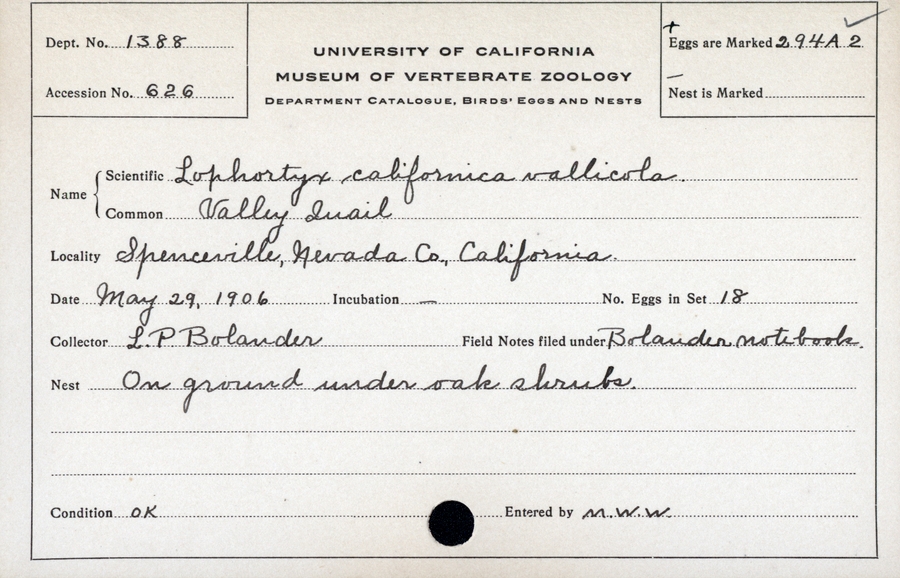 Dept. No. 1388
Accession No. 626
UNIVERSITY OF CALIFORNIA
MUSEUM OF VERTEBRATE ZOOLOGY
DEPARTMENT CATALOGUE, BIRDS' EGGS AND NESTS
+
Eggs are Marked 294A2
—
Nest is Marked
Name
Scientific Lophortyx californica vallicola.
Common Valley Quail
Locality Spenceville, Nevada Co., California.
Date May 29, 1906 Incubation — No. Eggs in Set 18
Collector L. P Bolander Field Notes filed under Bolander notebook.
Nest On ground under oak shrubs.
Condition OK Entered by M.W.W.